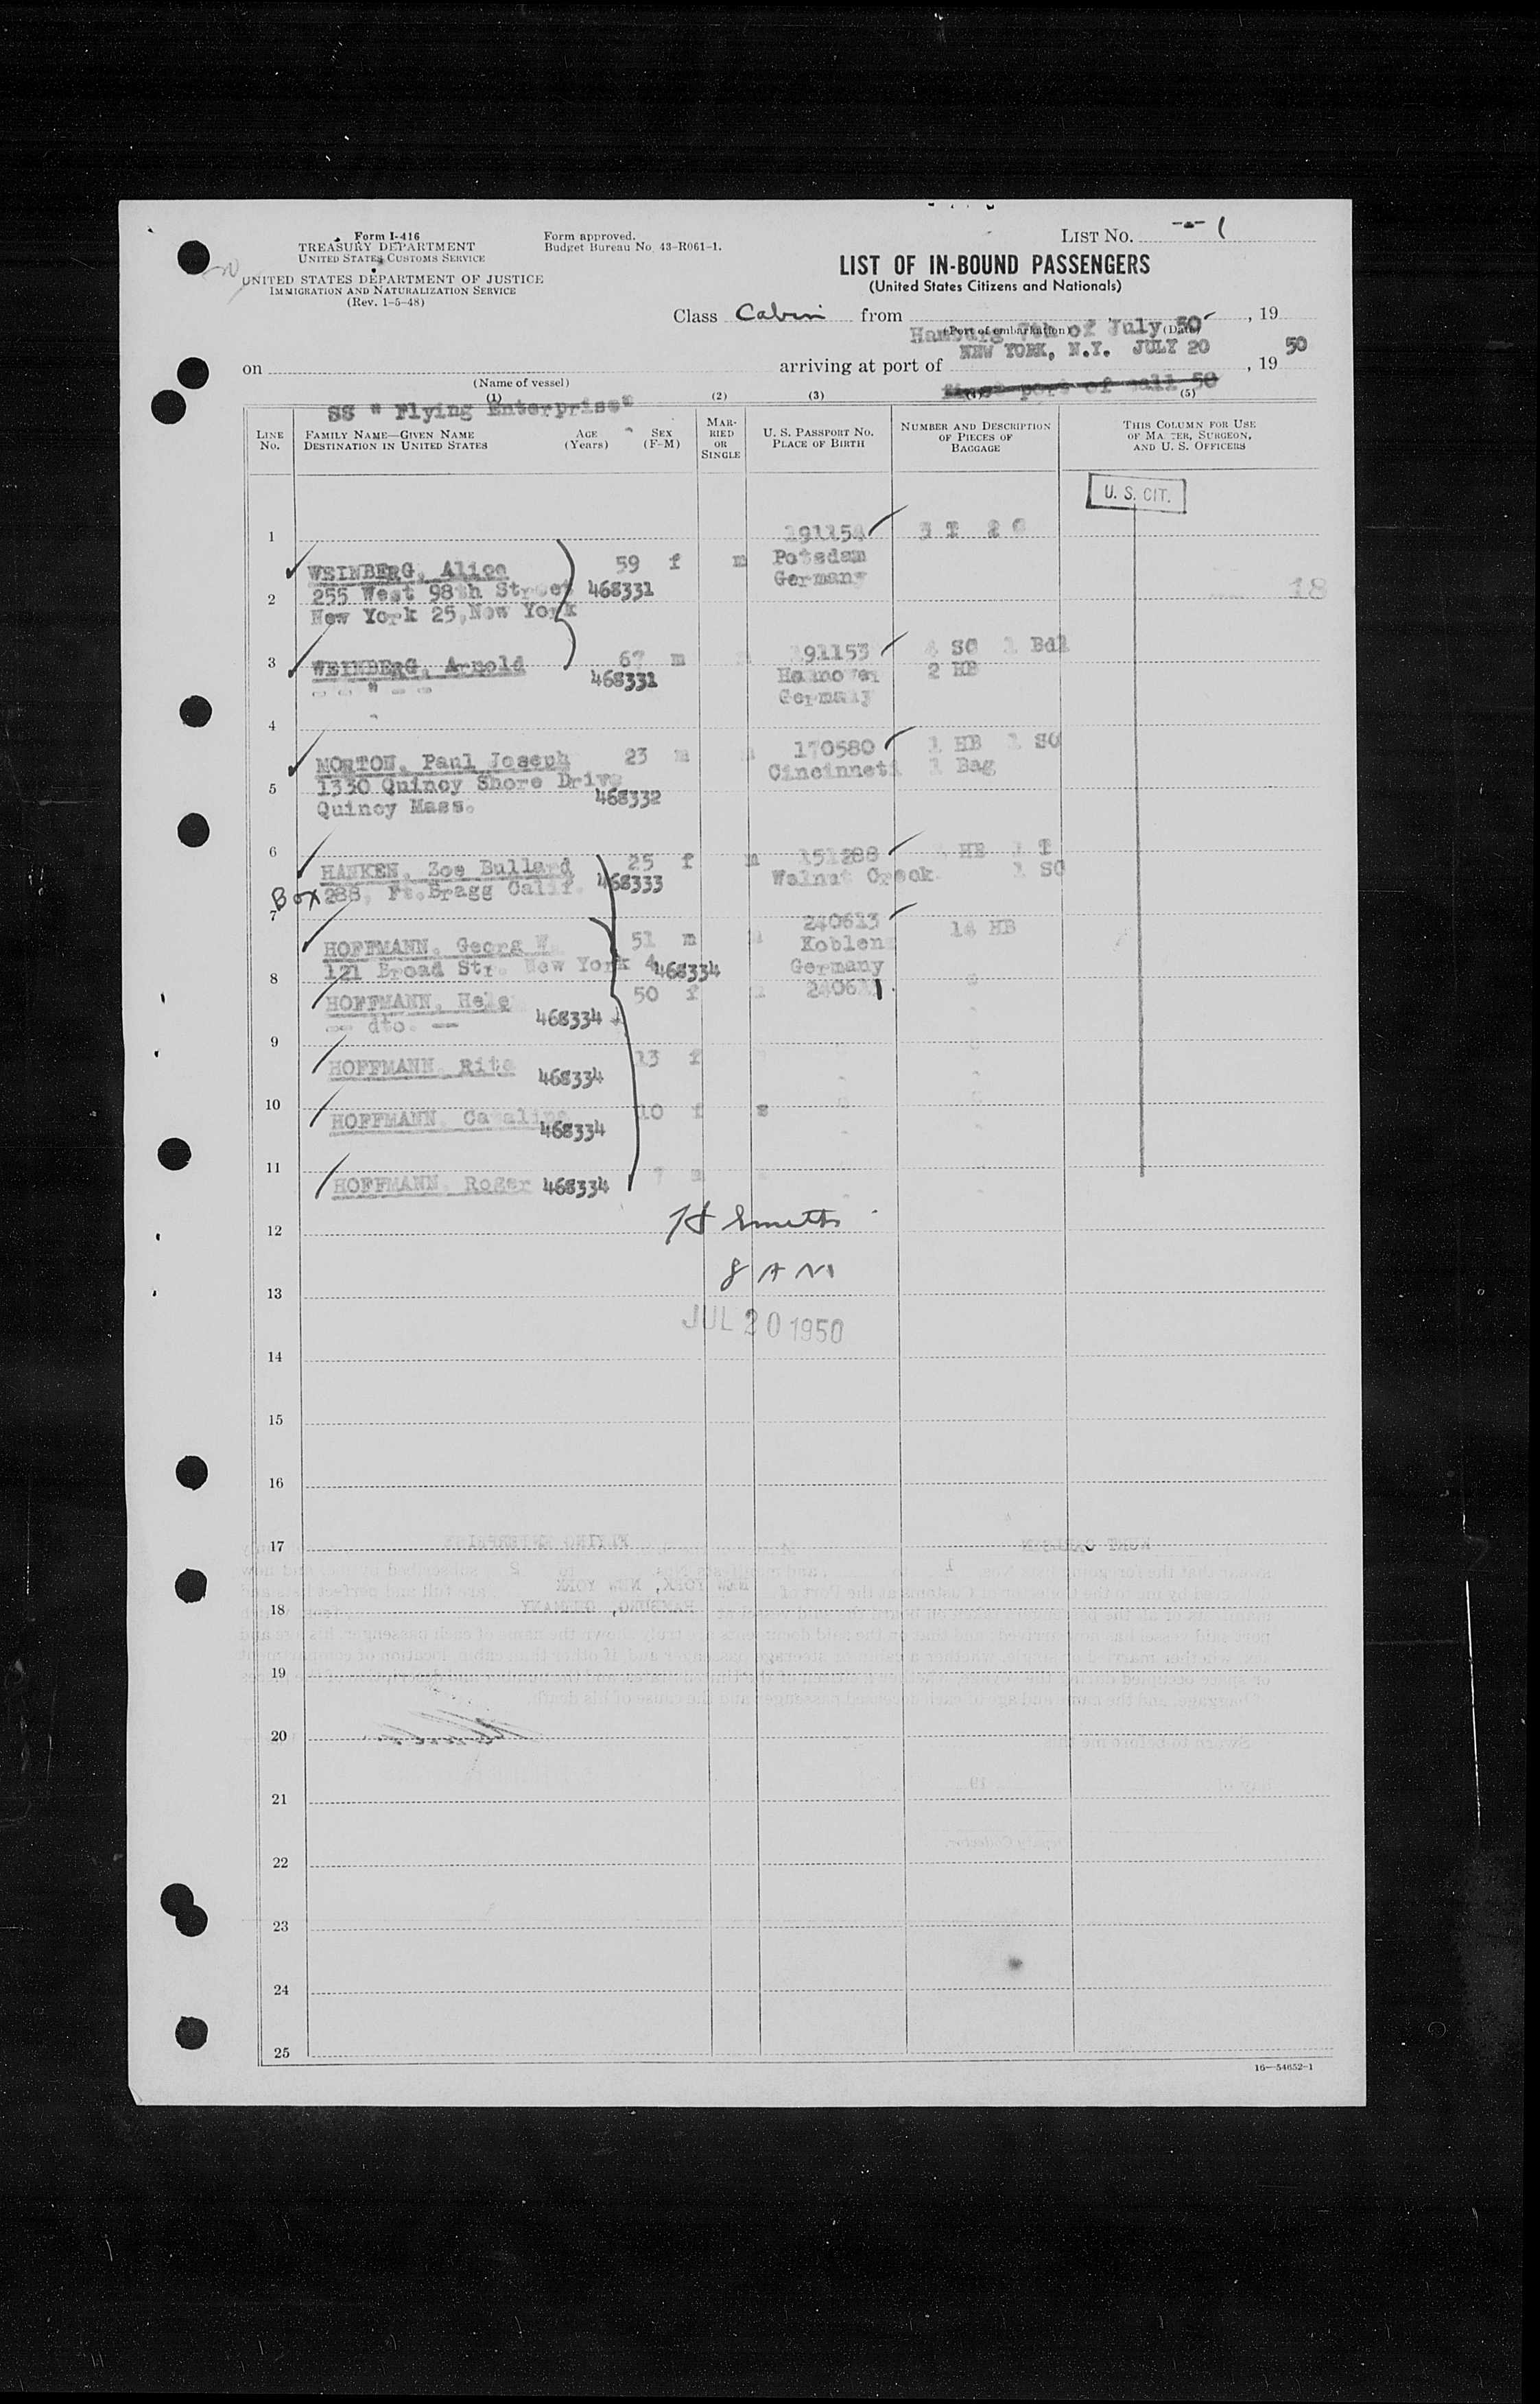 Form I-416
TREASURY DEPARTMENT
UNITED STATES CUSTOMS SERVICE
UNITED STATES DEPARTMENT OF JUSTICE
IMMIGRATION AND NATURALIZATION SERVICE
(Rev. 1-5-48)
Form approved.
Budget Bureau No. 43-R061-1.
LIST NO. 1
LIST OF IN-BOUND PASSENGERS
(United States Citizens and Nationals)
Class Cabin from , 19
(Port of embarkation) (Date)
Hamburg of July 50
NEW YORK, N.Y. JULY 20 50
on arriving at port of , 19
(Name of vessel)
port of call 50
SS " Flying Enterprise"
(1) (2) (3) (5)
LINE No.
FAMILY NAME—GIVEN NAME
DESTINATION IN UNITED STATES
AGE (Years)
SEX (F-M)
MARRIED OR SINGLE
U. S. PASSPORT NO.
PLACE OF BIRTH
NUMBER AND DESCRIPTION OF PIECES OF BAGGAGE
THIS COLUMN FOR USE OF MASTER, SURGEON, AND U. S. OFFICERS
U. S. CIT.
1
191154
WEINBERG, Alice 59 f m Potsdam
Germany
255 West 98th Street 468331
2 18
New York 25, New York
191153 SC 1 Bdl
3 WEINBERG, Arnold 67 m Hannover 2 HB
" 468331
Germany
4
MORTON, Paul Joseph 23 m 170580 1 HB 1 SC
Cincinneti 1 Bag
1330 Quincy Shore Drive
5 468332
Quincy Mass.
6
HANKEN, Zoe Bullard 25 f m 151288 HB T
Walnut Creek 1 SC
Box 288, Ft.Bragg Calif. 468333
7
240613 14 HB
HOFFMANN, Georg W. 51 m Koblenz
121 Broad Str. New York 4 468334 Germany
8
HOFFMANN, Hele 50 f
dto. 468334
9
HOFFMANN, Rita 13 f
468334
10
HOFFMANN, Catalina 10 f s
468334
11
HOFFMANN, Roger 468334 7 m
12
8 AM
13
JUL 20 1950
14
15
16
17
18
19
20
21
22
23
24
25
16—54652-1